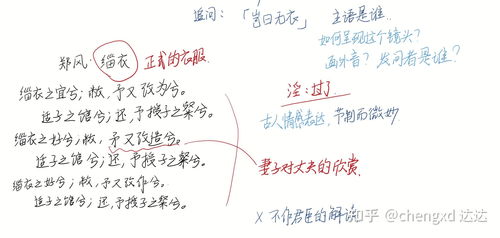 追问：「岂曰无衣」 主语是谁..
如何呈现这个镜头？
画外音？ 发问者是谁？
郑风·缁衣 正式的衣服.
缁衣之宜兮；敝，予又改为兮。
适子之馆兮；还，予授子之粲兮。
缁衣之好兮；敝，予又改造兮。
适子之馆兮；还，予授子之粲兮。
缁衣之好兮；敝，予又改作兮。
适子之馆兮；还，予授子之粲兮。
淫：过了
古人情感表达，节制而微妙
妻子对丈夫的欣赏.
× 不作君臣的解读
知乎 @chengxd 达达